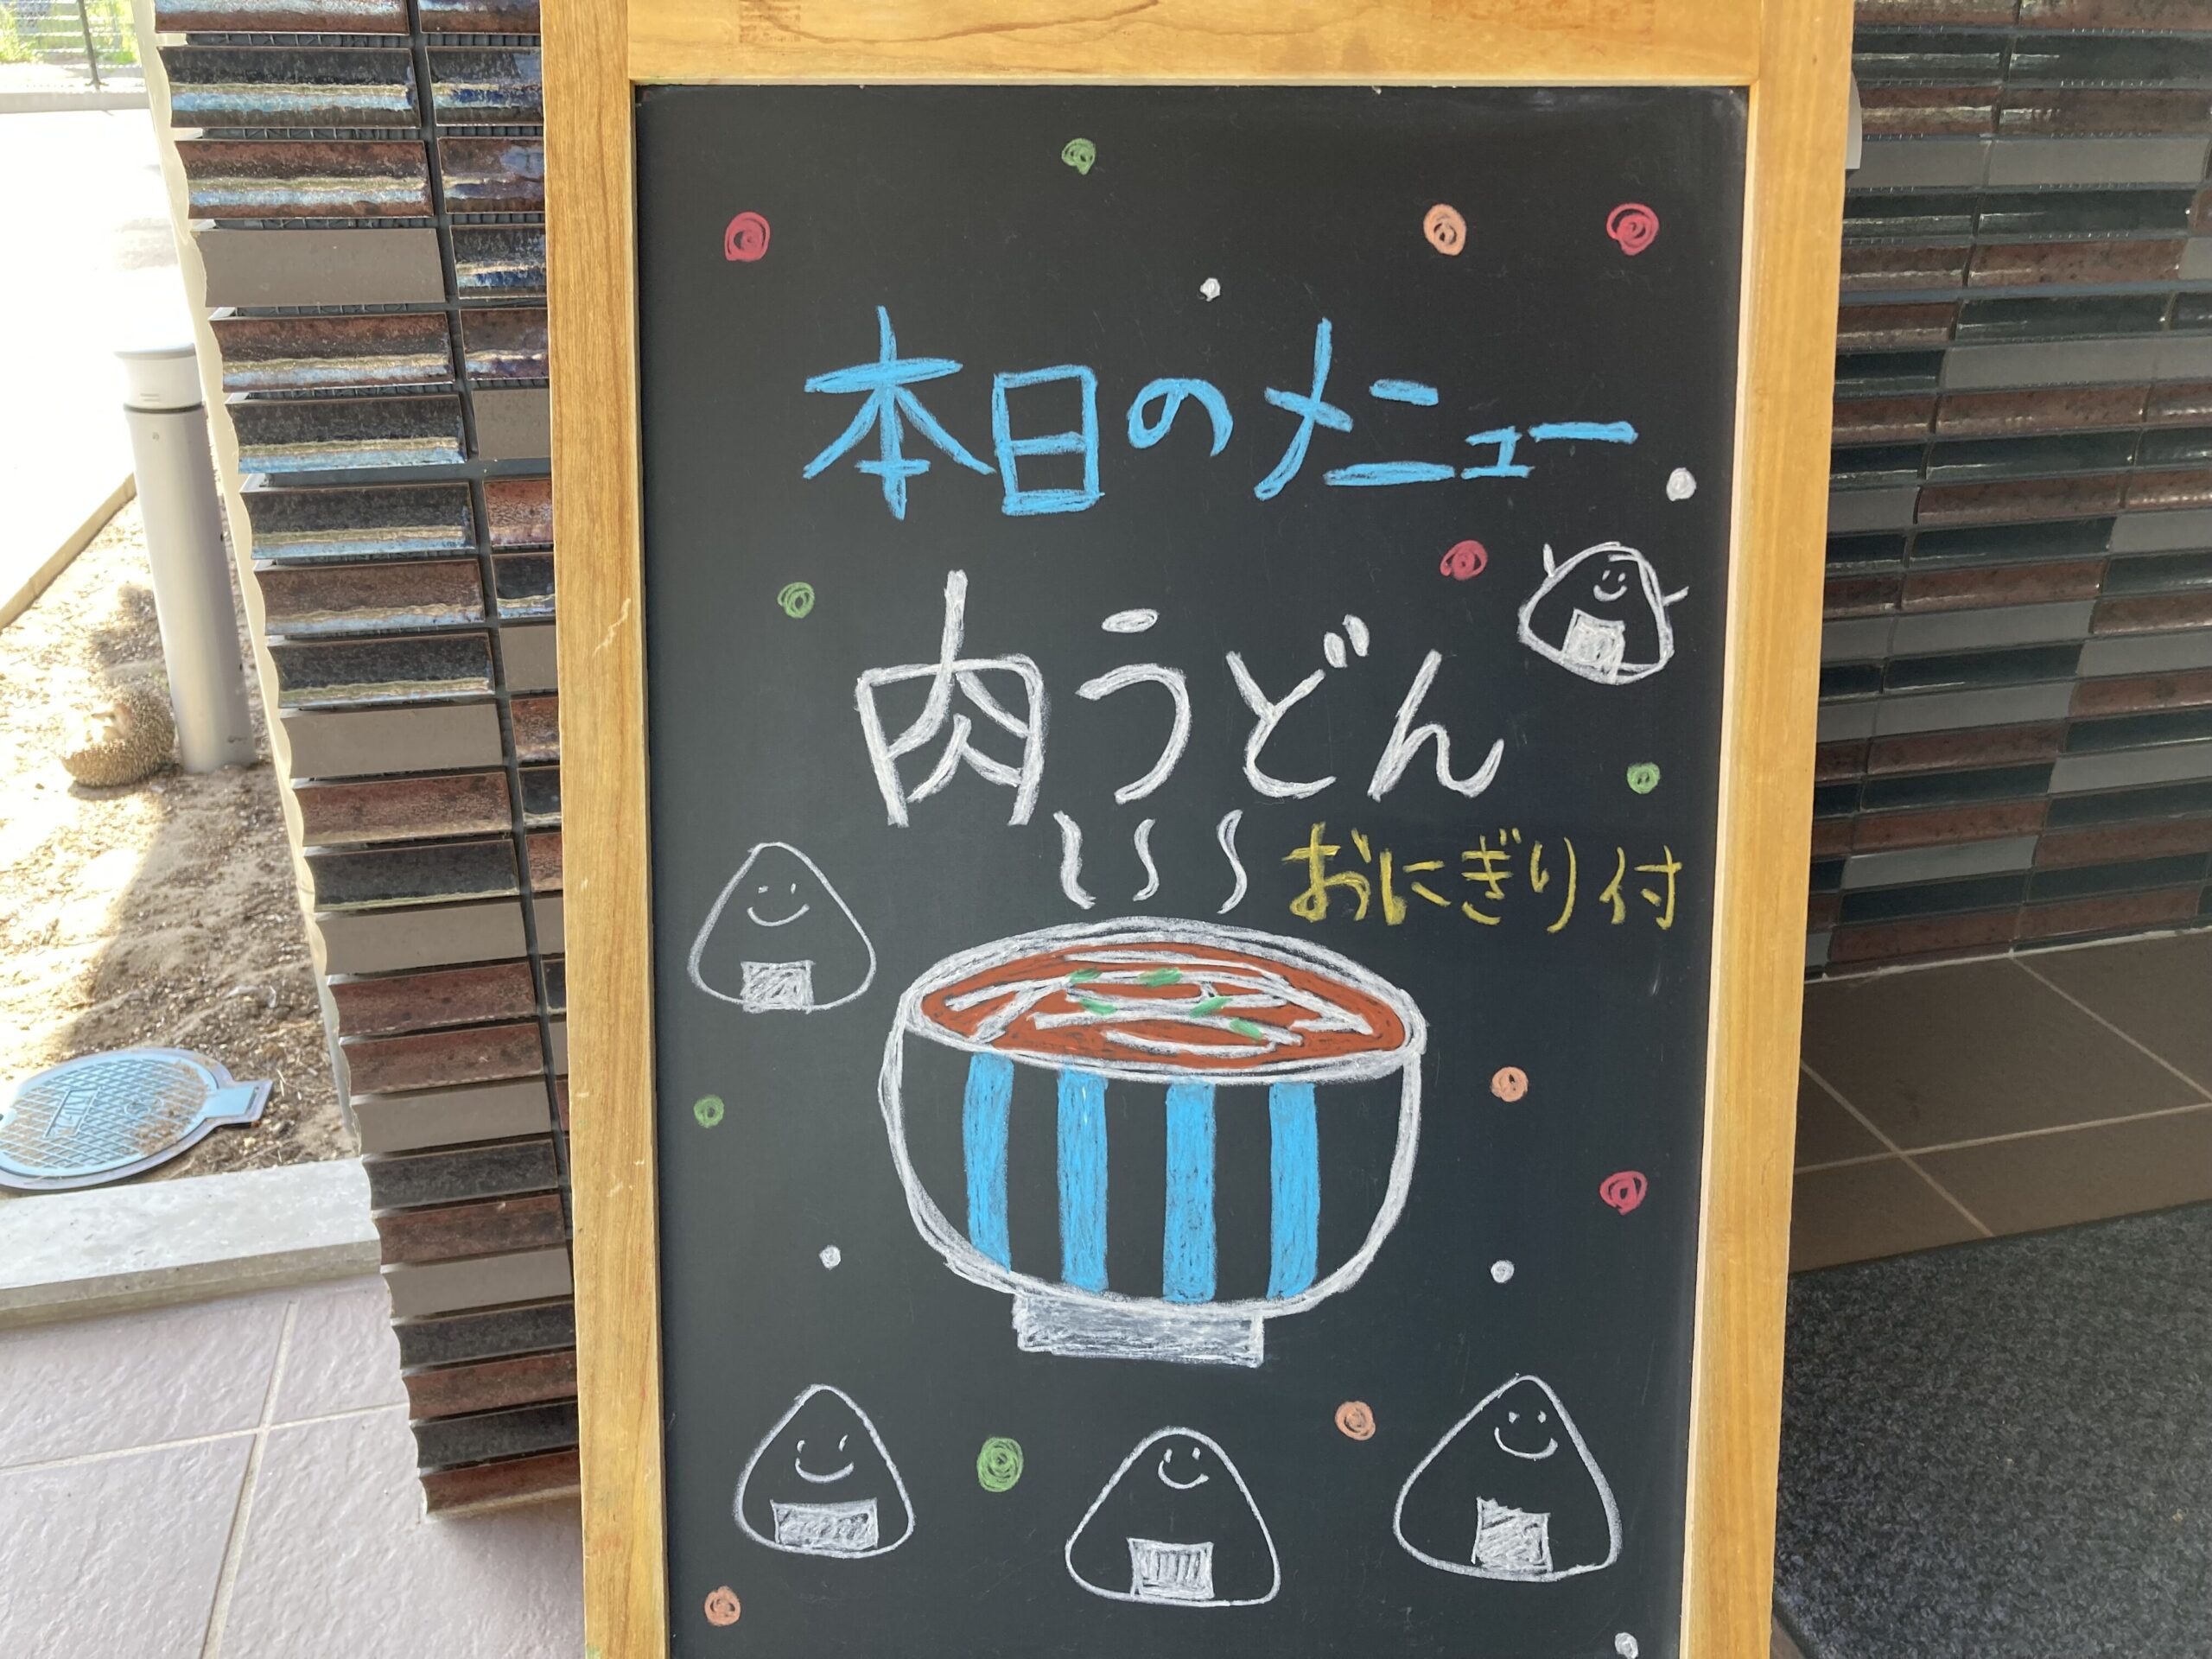 本日のメニュー
肉うどん
おにぎり付